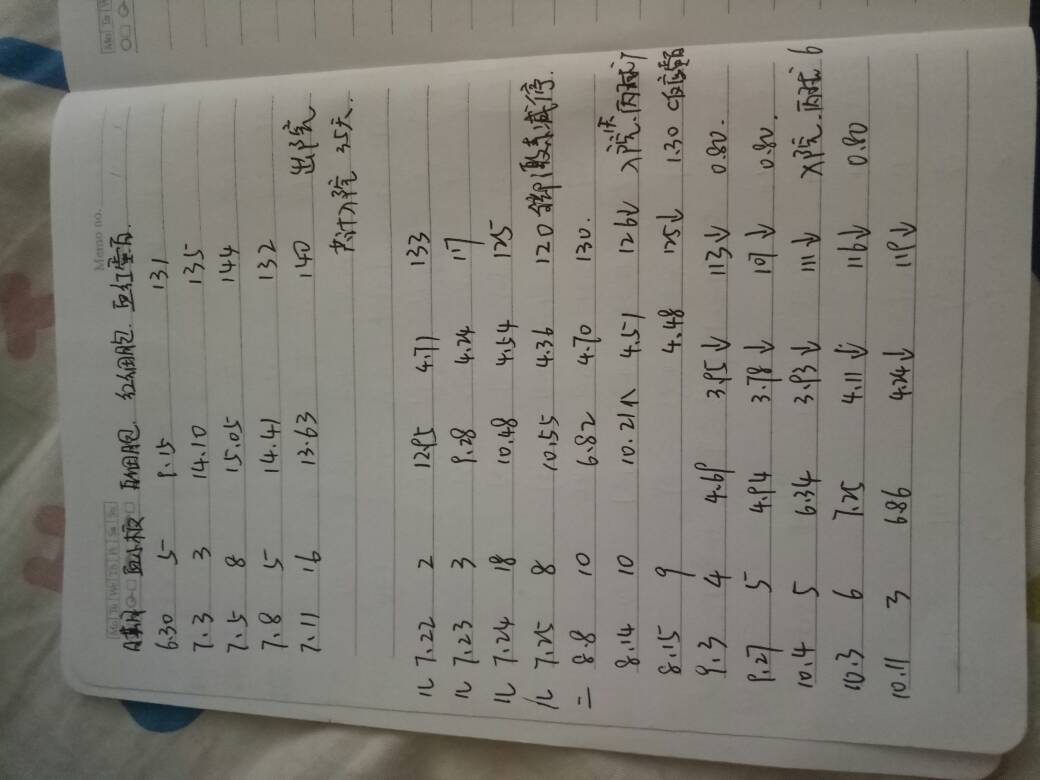 Memo no.
Mo Tu We Th Fr Sa Su
日期 血小板 白细胞 红细胞 血红蛋白
6.30 5 9.15 131
7.3 3 14.10 135
7.5 8 15.05 144
7.8 5 14.41 132
7.11 16 13.63 140 出院
共计入院 35天.
儿 7.22 2 12.95 4.71 133
儿 7.23 3 9.28 4.24 117
儿 7.24 18 10.48 4.54 125
儿 7.25 8 10.55 4.36 120 减停.
二 8.8 10 6.82 4.70 130.
8.14 10 10.21↑ 4.51 126↓ 入院 丙球
8.15 9 4.48 125↓ 1.30
9.3 4 4.69 3.95↓ 113↓ 0.80.
9.27 5 4.94 3.78↓ 109↓ 0.80.
10.4 5 6.34 3.93↓ 111↓ 入院 丙球 6
10.3 6 7.25 4.11↓ 116↓ 0.80
10.11 3 6.86 4.24↓ 119↓